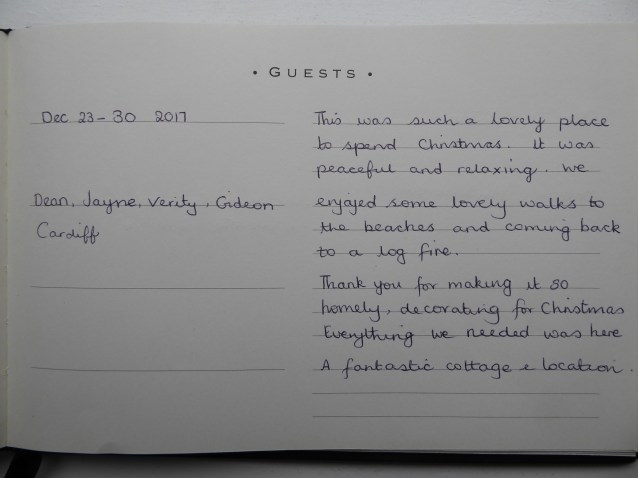 • GUESTS •
Dec 23-30 2017
Dean, Jayne, Verity, Gideon
Cardiff
This was such a lovely place
to spend Christmas. It was
peaceful and relaxing. We
enjoyed some lovely walks to
the beaches and coming back
to a log fire.
Thank you for making it so
homely, decorating for Christmas
Everything we needed was here
A fantastic cottage & location.